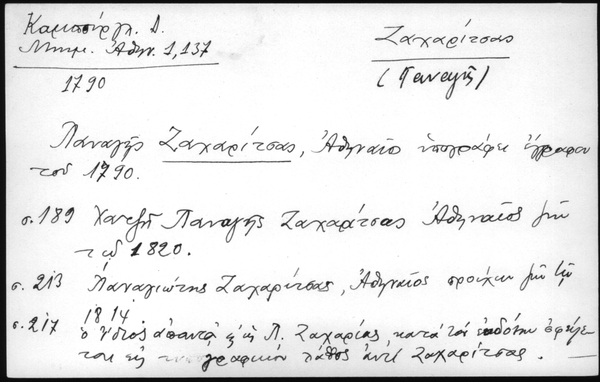 Καμπούργλ. Δ.
Μνημ. Ἀθην. 1, 137
1790
Ζαχαρίτσας
(Παναγῆς)
Παναγῆς Ζαχαρίτσας, Ἀθηναῖο ὑπογράφει ἔγγραφον
τοῦ 1790.
σ. 189 Χατζῆ Παναγῆς Ζαχαρίτσας Ἀθηναῖος ζῶν
τῷ 1820.
σ. 213 Παναγιώτης Ζαχαρίτσας, Ἀθηναῖος προύχων ζῶν τῷ
1814.
σ. 217 ὁ ἴδιος ἀπαντᾷ ὡς Π. Ζαχαρίας, κατὰ τὸν ἐκδότην ὀφείλε-
ται εἰς τυπογραφικὸν λάθος ἀντὶ Ζαχαρίτσας.